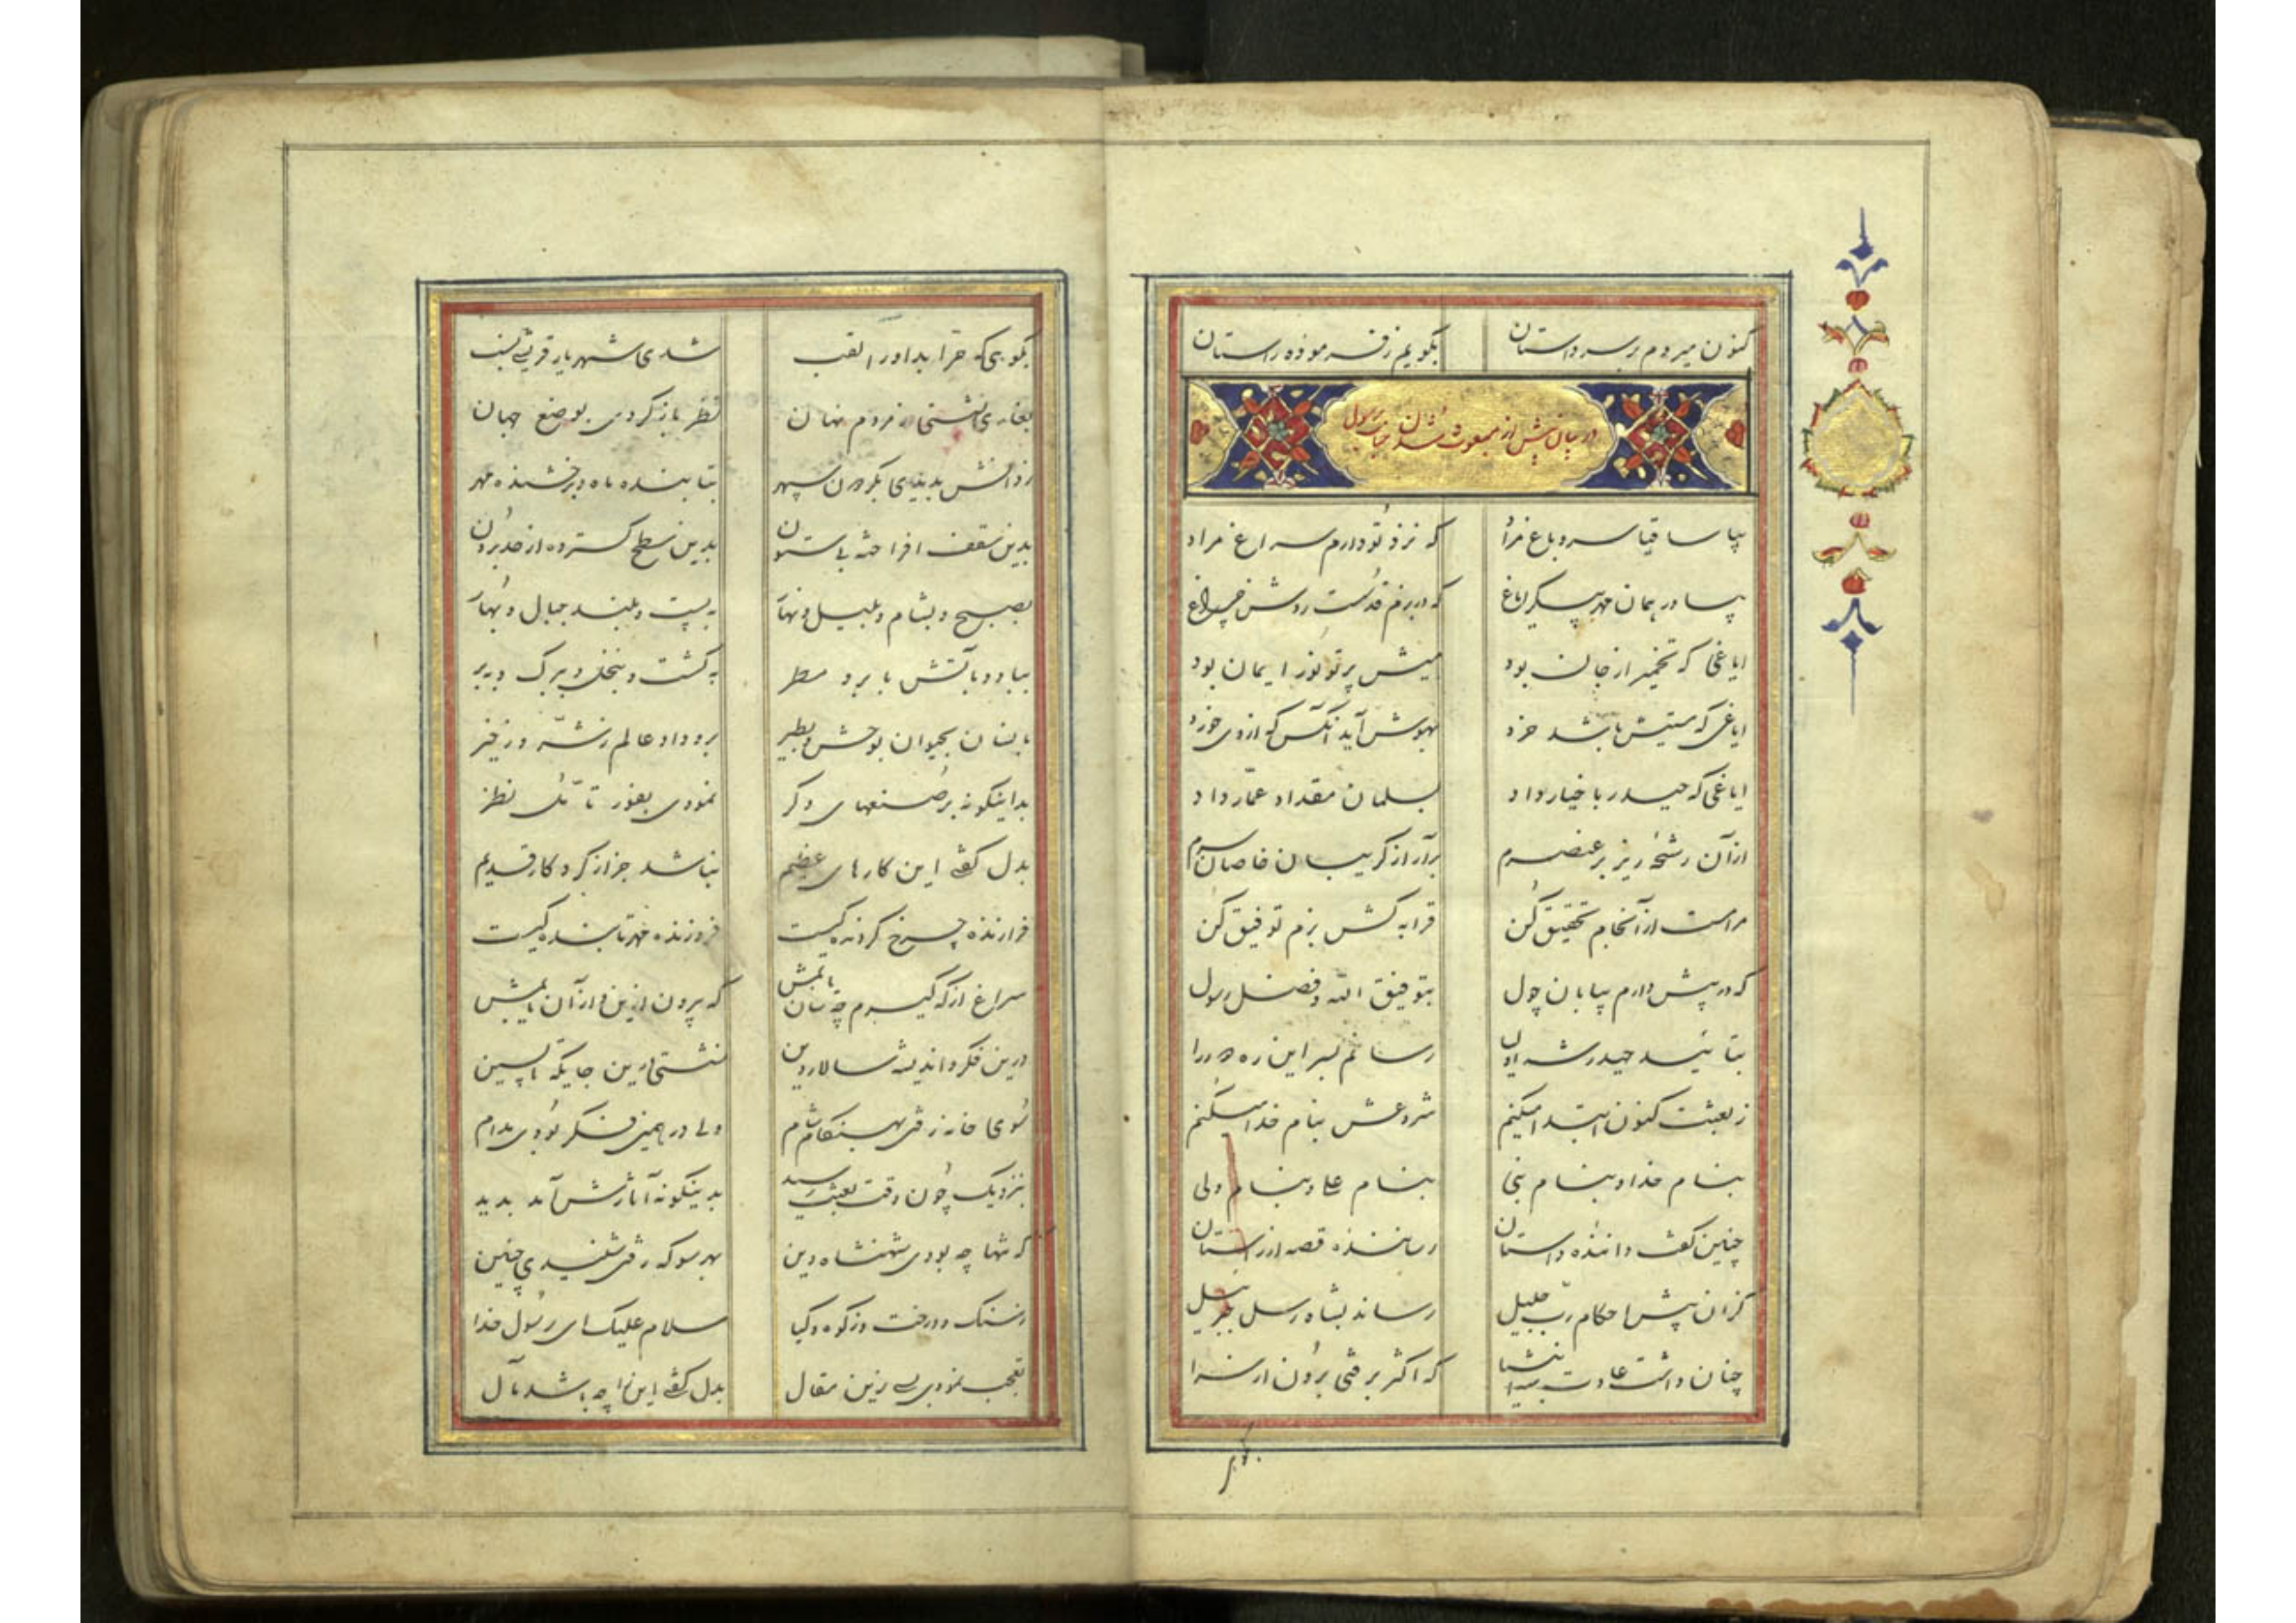 کنون میروم بر سر داستان بگویم ز فرموده راستان
در بیان پیش از مبعوث شدن جناب رسول
بیا ساقیا سرو باغ مراد که نزد تو دارم سراغ مراد
بیاور همان مهر پیکر ایاغ که در بزم قدست روشن چراغ
ایاغی که تخمیر از جان بود میش پرتو نور ایمان بود
ایاغی که مستیش باشد خرد بهوش آید آنکس که از وی خورد
ایاغی که حیدر باخیار داد بسلمان مقداد عمّار داد
از آن رشحه ریز بر عنصرم برآر از گریبان خاصان سرم
مراست از آنجام تحقیق کن قرابه کش بزم توفیق کن
که در پیش دارم بیابان چول بتوفیق الله و فضل رسول
بتائید حیدر شه اولیا رسانم بسر این ره دور را
ز بعثت کنون ابتدا میکنم شروعش بنام خدا میکنم
بنام خدا و بنام نبی بنام علی و بنام ولی
چنین گفت داننده داستان رساننده قصه از راستان
کزان پیش احکام ربّ جلیل رساند بشاه رسل جبرئیل
چنان داشت عادت که اکثر برفتی برون از سرا
بکوهی که حرّا بد او را لقب شدی شهریار قریشی نسب
بغاری نشستی ز مردم نهان نظر باز کردی بوضع جهان
ز دانش بدیدی بگردن سپهر بتابنده ماه و رخشنده مهر
بدین سقف افراخته بی‌ستون بدین سطح گسترده از حد برون
بصبح و بشام و بلیل و نهار به پست و بلند جبال و بحار
بباد و بآتش بابر و مطر به کشت و بنخل و ببرگ و ببر
بانسان بحیوان بوحش و بطیر برو داد عالم ز شرّ و ز خیر
بداینگونه بر صنعهای دگر نمودی بغور تأمّل نظر
بدل گفتی این کارهای عظیم نباشد جز از کردکار قدیم
فرازنده چرخ گردنده کیست فروزنده مهر تابنده کیست
سراغ از که گیرم چه سان یابمش که بیرون ازین و از آن یابمش
درین فکر و اندیشه سالار دین نشستی درین جایگه
سوی خانه رفتی بهنگام شام ولی در همین فکر بودی مدام
بنزدیک چون وقت بعثت رسید بدینگونه آثارش آمد بدید
که تنها چه بودی شهنشاه دین بهر سو که رفتی شنیدی چنین
ز سنگ و درخت و ز کوه و گیا سلام علیک ای رسول خدا
تعجب نمودی بسی زین مقال بدل گفتی این را چه باشد مآل